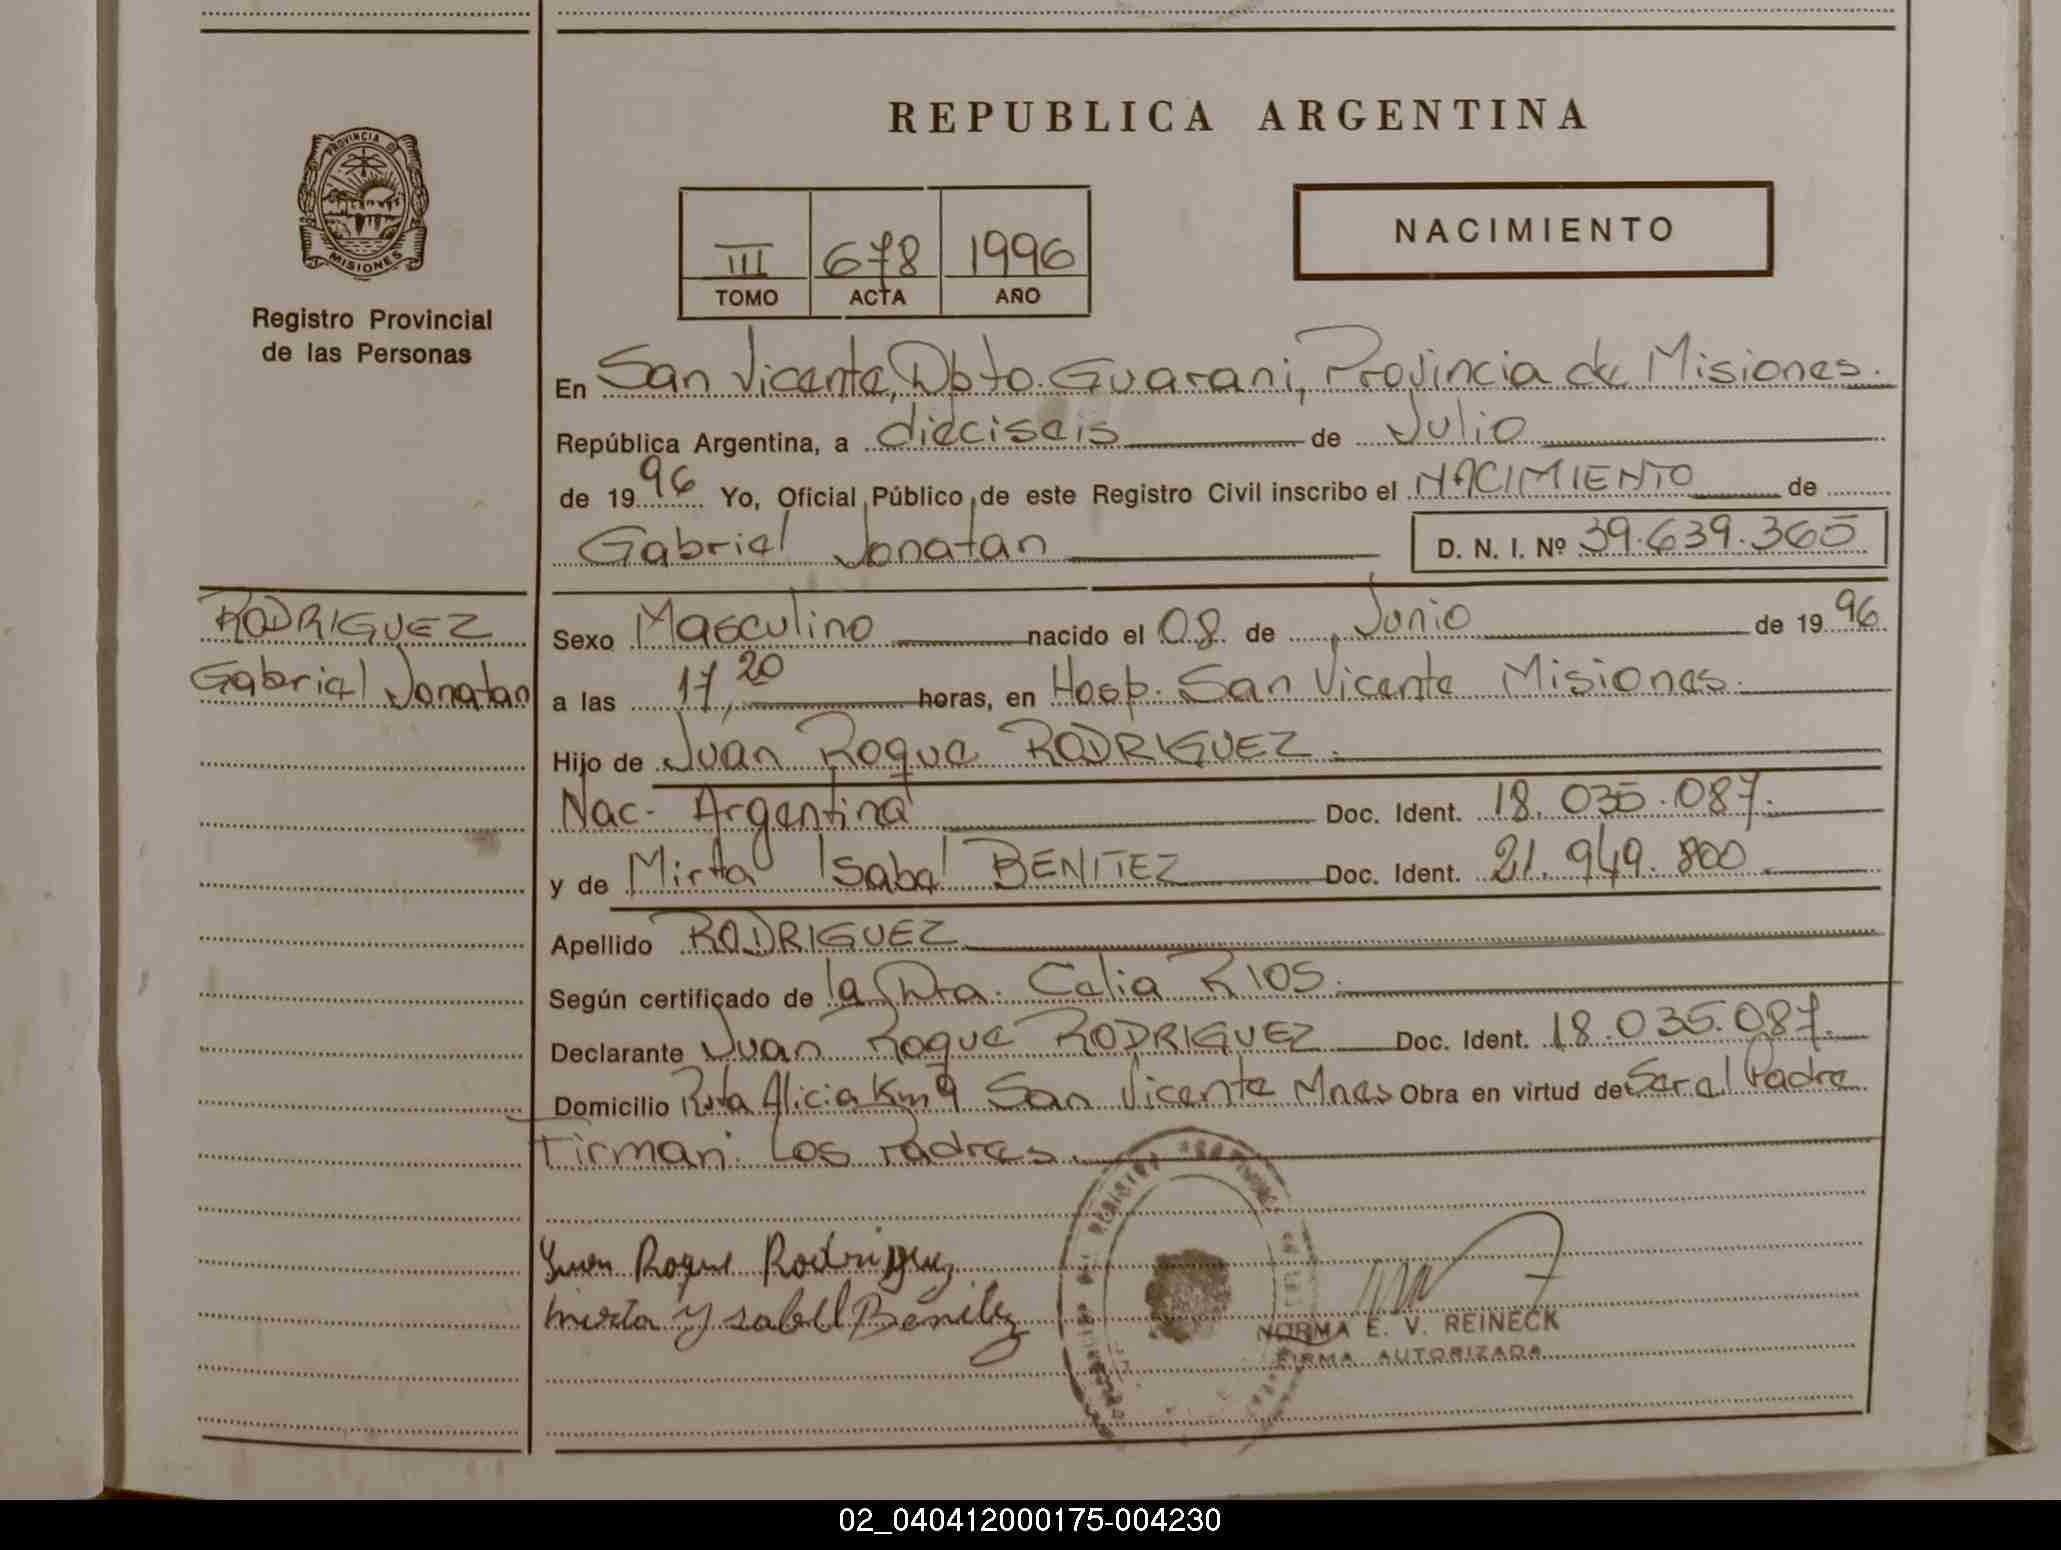 REPUBLICA ARGENTINA
PROVINCIA DE
MISIONES
Registro Provincial
de las Personas
III 678 1996
TOMO ACTA AÑO
NACIMIENTO
En San Vicente, Dpto. Guarani, Provincia de Misiones.
República Argentina, a dieciseis de Julio
de 1996 Yo, Oficial Público de este Registro Civil inscribo el NACIMIENTO de
Gabriel Jonatan D. N. I. Nº 39.639.365
RODRIGUEZ
Gabriel Jonatan
Sexo Masculino nacido el 08 de Junio de 1996
a las 17,20 horas, en Hosp. San Vicente Misiones.
Hijo de Juan Roque RODRIGUEZ.
Nac. Argentina Doc. Ident. 18.035.087.
y de Mirta Isabel BENITEZ Doc. Ident. 21.949.800
Apellido RODRIGUEZ
Según certificado de la Dra. Celia RIOS.
Declarante Juan Roque RODRIGUEZ Doc. Ident. 18.035.087.
Domicilio Ruta Alicia Km 9 San Vicente Mnes Obra en virtud de Ser el Padre
Firman: Los Padres.
Juan Roque Rodriguez
Mirta Ysabel Benitez
NORMA E. V. REINECK
FIRMA AUTORIZADA
02_040412000175-004230